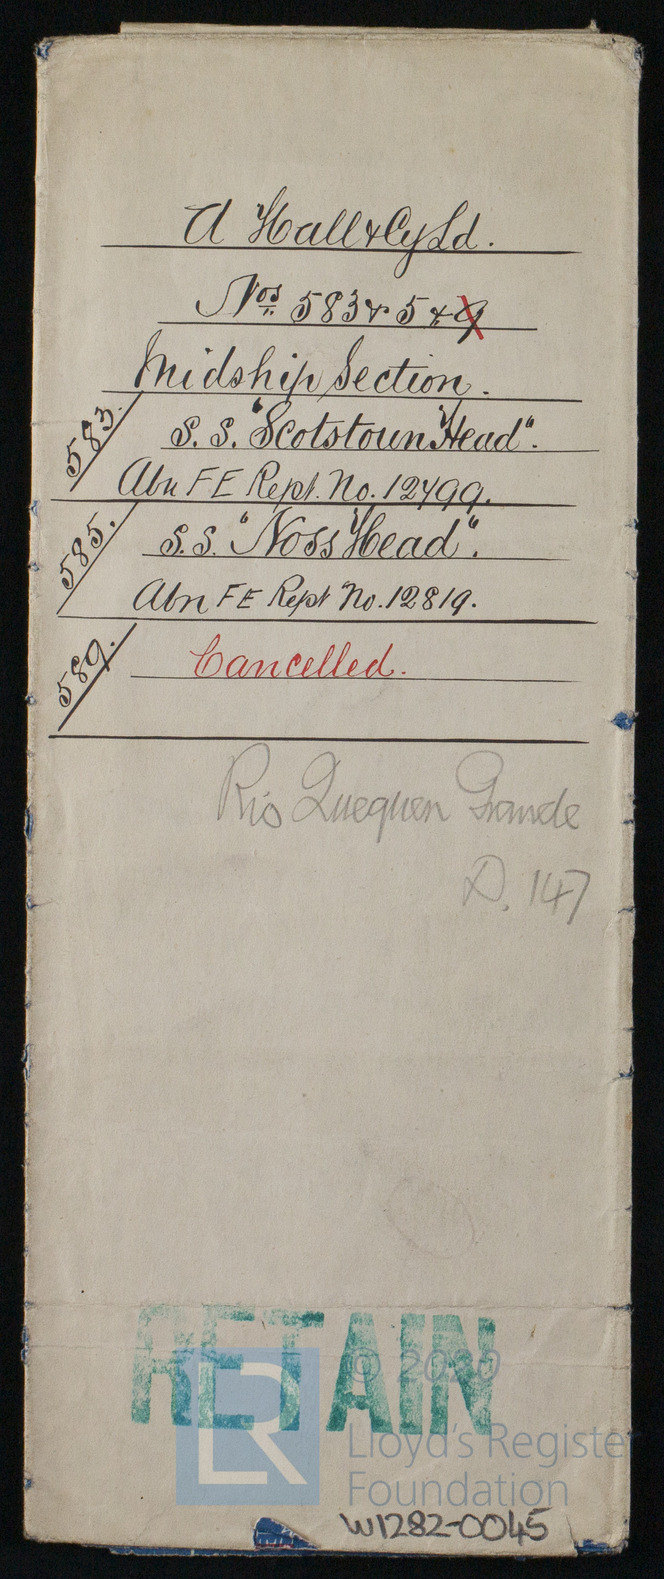 A Hall & Cy Ld.
Nos 583 & 5 & 9
Midship Section.
583.
S.S. "Scotstoun Head".
Abn F E Rept. No. 12499.
585.
S.S. "Noss Head".
Abn F E Rept No. 12819.
589.
Cancelled.
Rio Quequen Grande
D. 147
RETAIN
© 2020
LR
Lloyd's Register
Foundation
W1282-0045